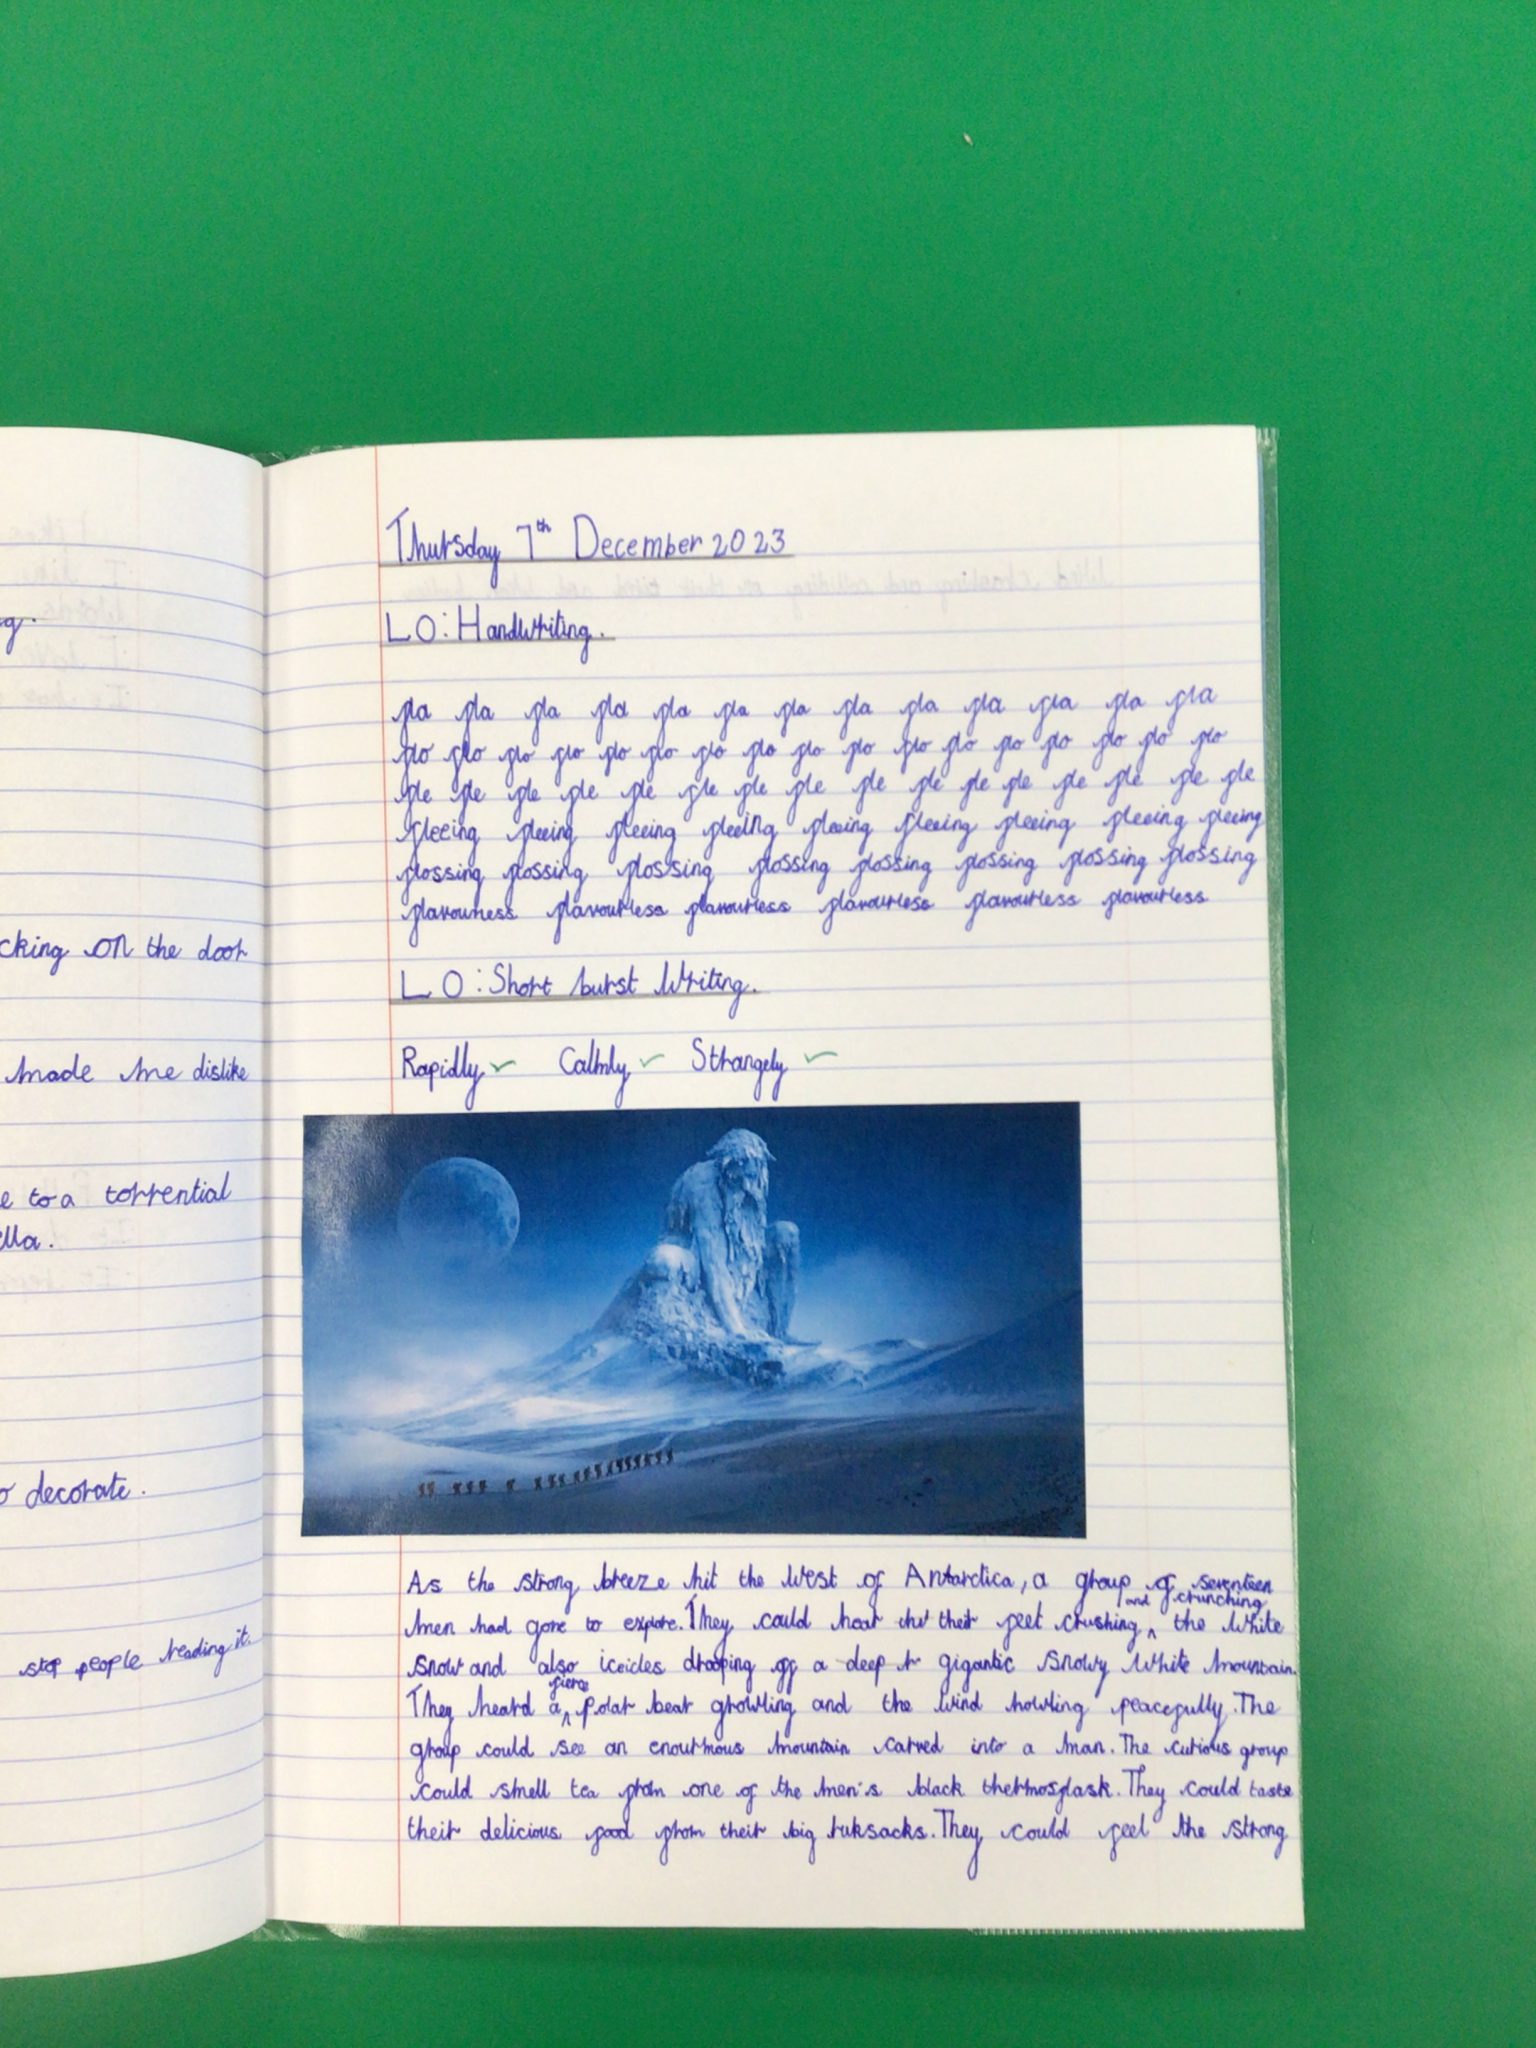 g.
cking on the door
made me dislike
e to a torrential
ella.
o decorate.
stop people reading it.
Thursday 7th December 2023
LO: Handwriting.
fla fla fla fla fla fla fla fla fla fla fla fla fla
flo flo flo flo flo flo flo flo flo flo flo flo flo flo flo flo flo
fle fle fle fle fle fle fle fle fle fle fle fle fle fle fle fle
fleeing fleeing fleeing fleeing fleeing fleeing fleeing fleeing fleeing
flossing flossing flossing flossing flossing flossing flossing flossing
flavourless flavourless flavourless flavourless flavourless flavourless
LO: Short burst writing.
Rapidly Calmly Strangely
As the strong breeze hit the West of Antarctica, a group of seventeen
men had gone to explore. They could hear their feet crushing and crunching the white
snow and also iceicles dropping off a deep gigantic snowy white mountain.
They heard a fierce polar bear growling and the wind howling peacefully. The
group could see an enourmous mountain carved into a man. The curious group
could smell tea from one of the men's black thermosflask. They could taste
their delicious food from their big ruksacks. They could feel the strong